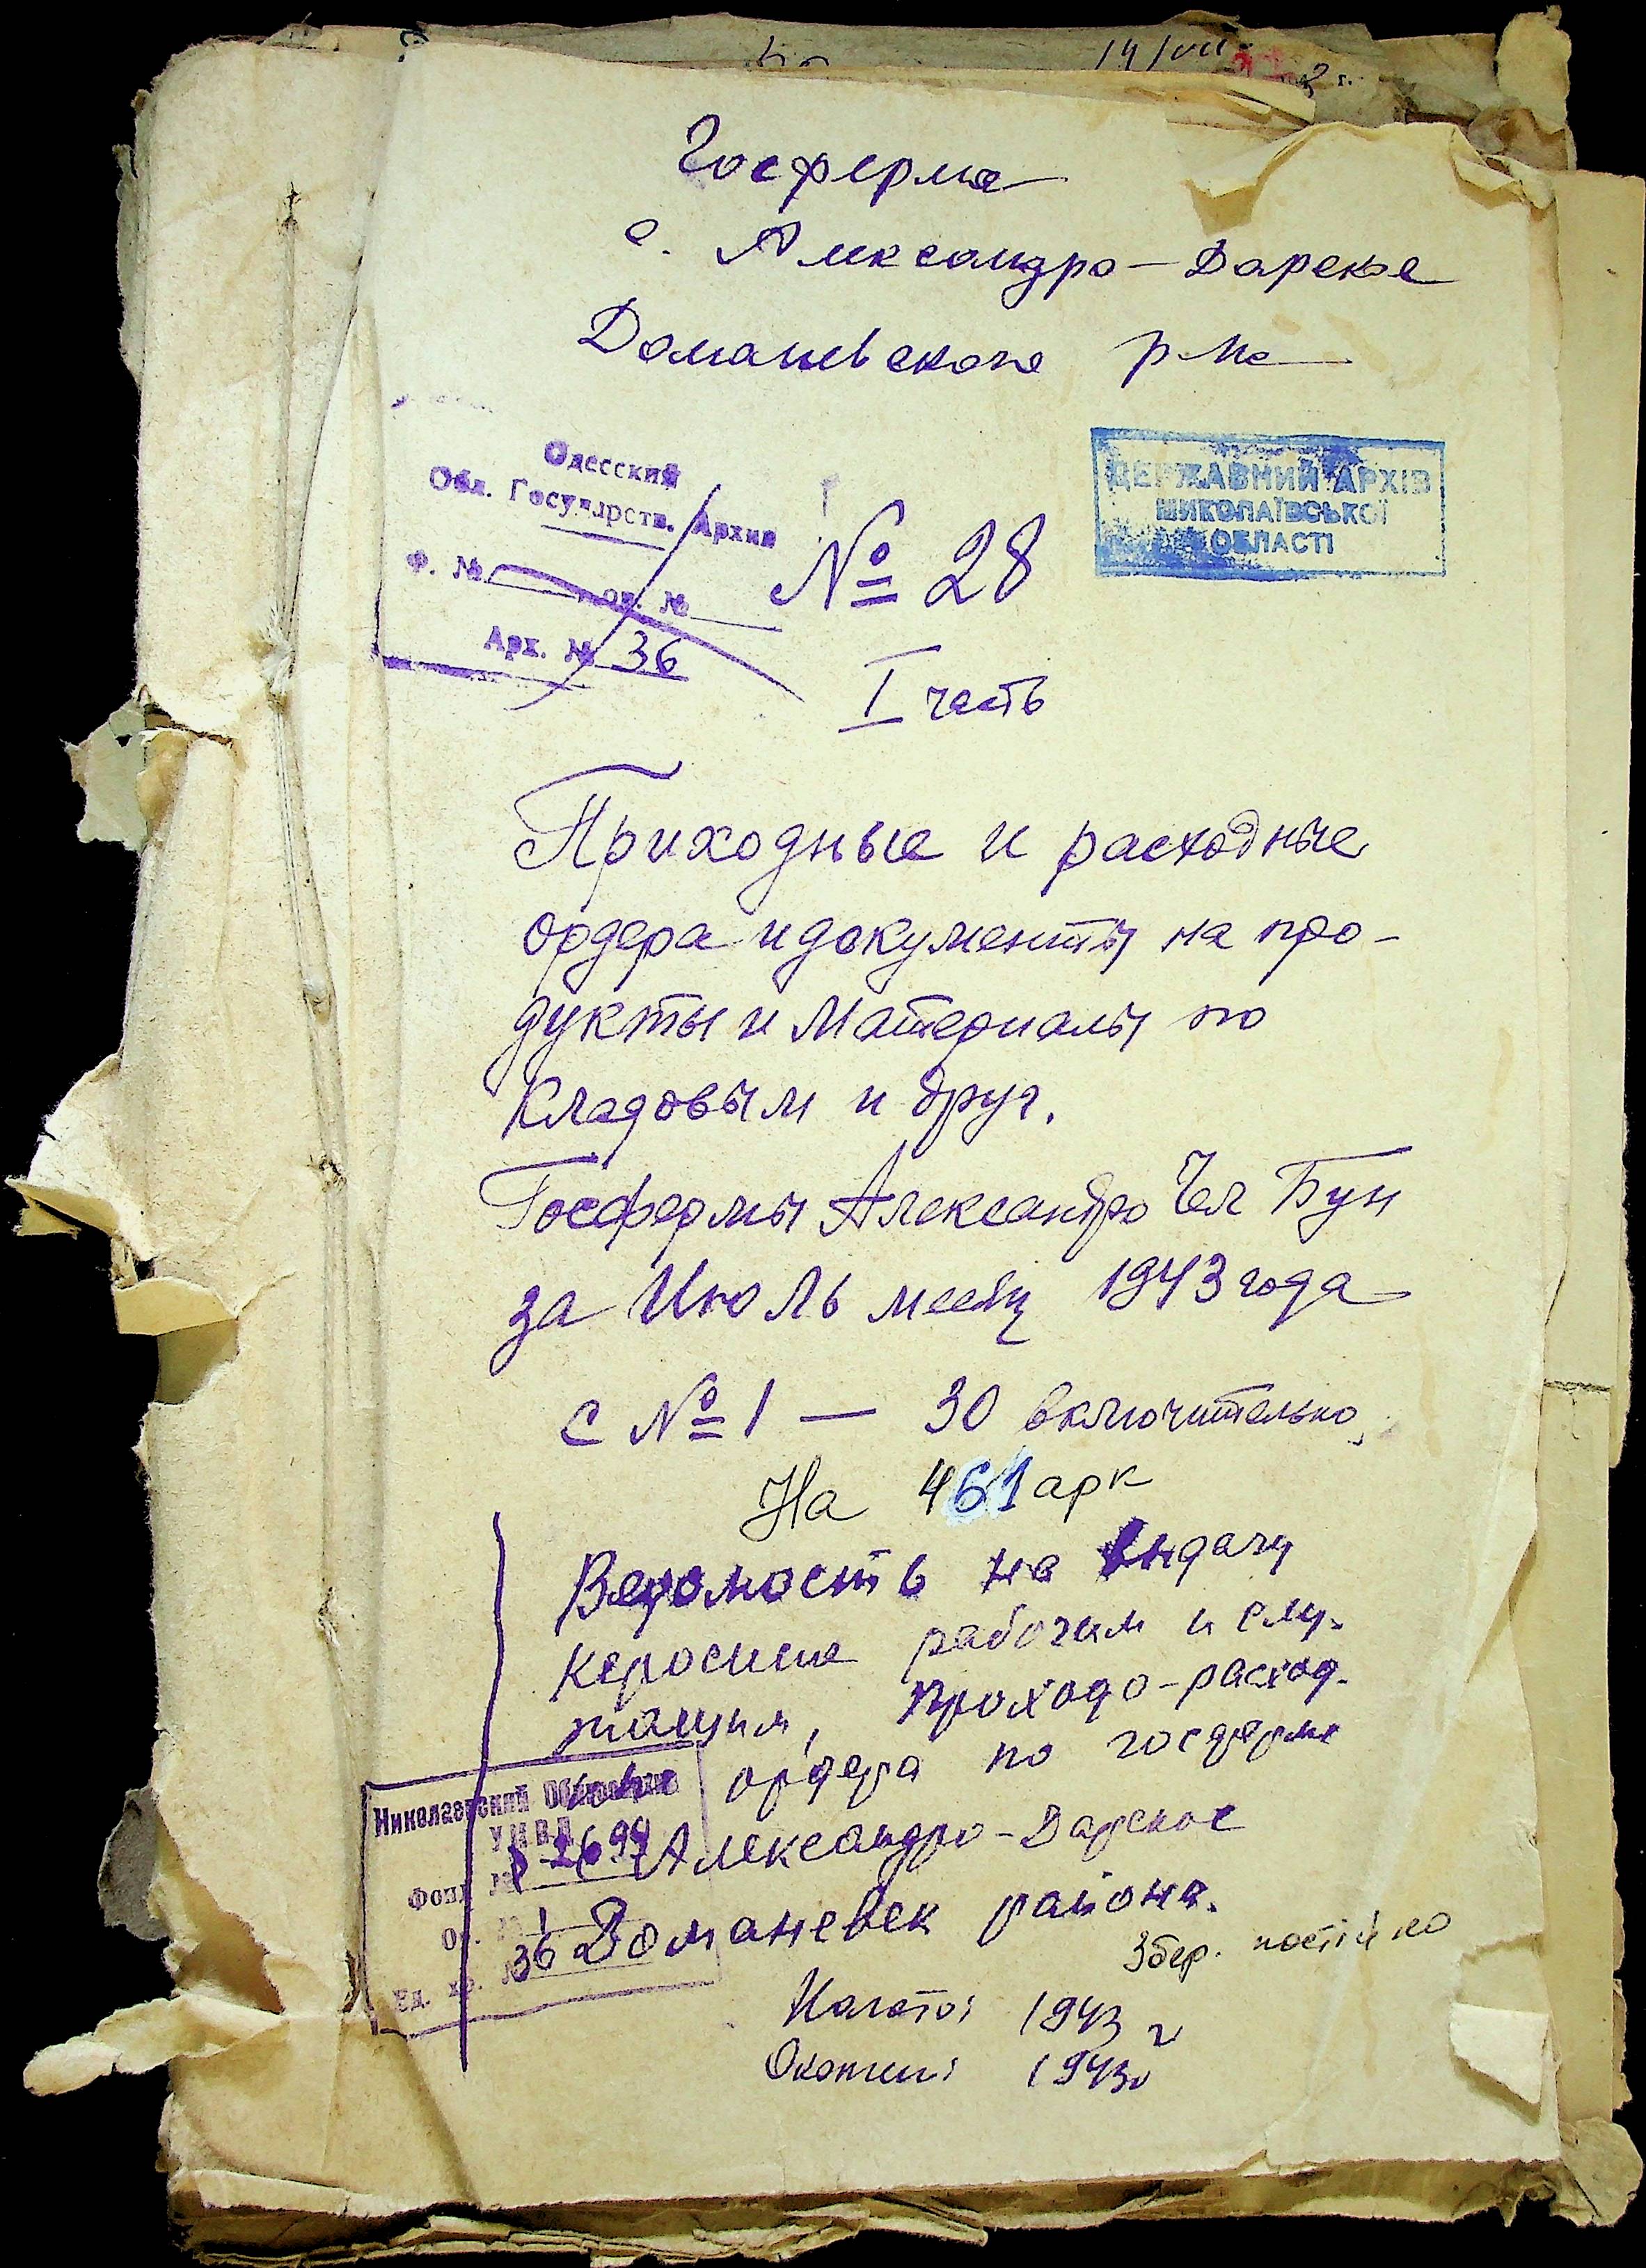 14/VII
2 г.
Госферма
с. Александро-Дарское
Доманевского р-на
Одесский
Обл. Государств. Архив
Ф. № оп. №
Арх. № 36
ДЕРЖАВНИЙ АРХІВ
МИКОЛАЇВСЬКОЇ
ОБЛАСТІ
№ 28
I часть
Приходные и расходные
ордера и документы на про-
дукты и материалы по
кладовым и друг.
Госфермы Александро Чел Бун
за Июль месяц 1943 года
с № 1 — 30 включительно
На 461 арк
Ведомость на выдачу
керосина рабочим и слу-
жащим, проходо-расход.
ордера по госферме
Александро-Дарское
Доманевск района.
Николаевский Областной
У М В Д
Фонд № 2694
Оп. № 1
Ед. хр. № 36
Збер. постійно
Начато: 1943 г
Окончен: 1943г